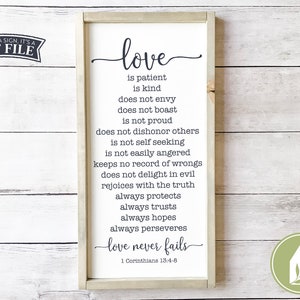 A SIGN, IT'S A
FILE
love
is patient
is kind
does not envy
does not boast
is not proud
does not dishonor others
is not self seeking
is not easily angered
keeps no record of wrongs
does not delight in evil
rejoices with the truth
always protects
always trusts
always hopes
always perseveres
love never fails
1 Corinthians 13:4-8